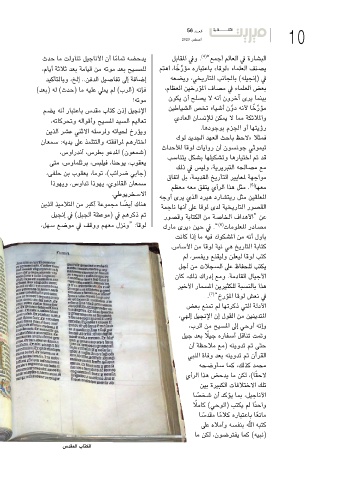 10
العدد 56
أغسطس 2023
البشارة في العالم أجمع"(٧). وفي المقابل
يصنف العلماء «لوقا» باعتباره مؤرخًا، اهتم
في (إنجيله) بالجانب التاريخي، ويضعه
بعض العلماء في مصاف المؤرخين العظام،
بينما يرى آخرون أنه لا يصلح أن يكون
مؤرخًا لأنه دوَّن أشياء تخص الشياطين
والملائكة مما لا يمكن للإنسان العادي
رؤيتها أو الجزم بوجودها.
فمثلًا «لاحظ باحث العهد الجديد لوك
تيموثي جونسون أن روايات لوقا للأحداث
قد تم اختيارها وتشكيلها بشكل يتناسب
مع مصالحه التبريرية، وليس في ذلك
مواجهة لمعايير التاريخ القديمة، بل اتفاق
معها"(٨). مثل هذا الرأي يتفق معه معظم
المعلقين مثل ريتشارد هيرد الذي يرى أوجه
القصور التاريخية لدى لوقا على أنها ناجمة
عن "الأهداف الخاصة من الكتابة وقصور
مصادر المعلومات"(٩). في حين «يرى مارك
باول أنه من المشكوك فيه ما إذا كانت
كتابة التاريخ هي نية لوقا من الأساس.
كتب لوقا ليعلن وليقنع ويفسر، لم
يكتب للحفاظ على السجلات من أجل
الأجيال القادمة. ومع إدراك ذلك، كان
هذا بالنسبة للكثيرين المسمار الأخير
في نعش لوقا المؤرخ"(١٠).
الأدلة التي ذكرتها لم تمنع بعض
المتدينين من القول إن الإنجيل إلهي،
وإنه أوحي إلى المسيح من الرب،
وتمت تناقل أسفاره جيلًا بعد جيل
حتى تم تدوينه (مع ملاحظة أن
القرآن تم تدوينه بعد وفاة النبي
محمد كذلك، كما سأوضحه
لاحقًا)، لكن ما يدحض هذا الرأي
تلك الاختلافات الكبيرة بين
الأناجيل، بما يؤكد أن شخصًا
واحدًا لم يكتب (الوحي) كاملًا
مانعًا باعتباره كلامًا مقدسًا
كتبه الله بنفسه وأملاه على
(نبيه) كما يفترضون، لكن ما
يدحضه تمامًا أن الأناجيل تناولت ما حدث
للمسيح بعد موته من قيامه بعد ثلاثة أيام،
إضافة إلى تفاصيل الدفن.. إلخ، وبالتأكيد
فإنه (الرب) لم يملي عليه ما (حدث) له (بعد)
موته!
الإنجيل إذن كتاب مقدس باعتبار أنه يضم
تعاليم السيد المسيح وأقواله وتحركاته،
ويؤرخ لحياته ولرسله الاثني عشر الذين
اختارهم لمرافقته والتتلمذ على يديه: سمعان
(شمعون) المدعو بطرس، أندراوس،
يعقوب، يوحنا، فيلبس، برثلماوس، متى
(جابي ضرائب)، توما، يعقوب بن حلفى،
سمعان القانوي، يهوذا تداوس، ويهوذا
الاسخريوطي.
هناك أيضًا مجموعة أكبر من التلاميذ الذين
تم ذكرهم في (موعظة الجبل) في إنجيل
لوقا: "ونزل معهم ووقف في موضع سهل،
الكتاب المقدس